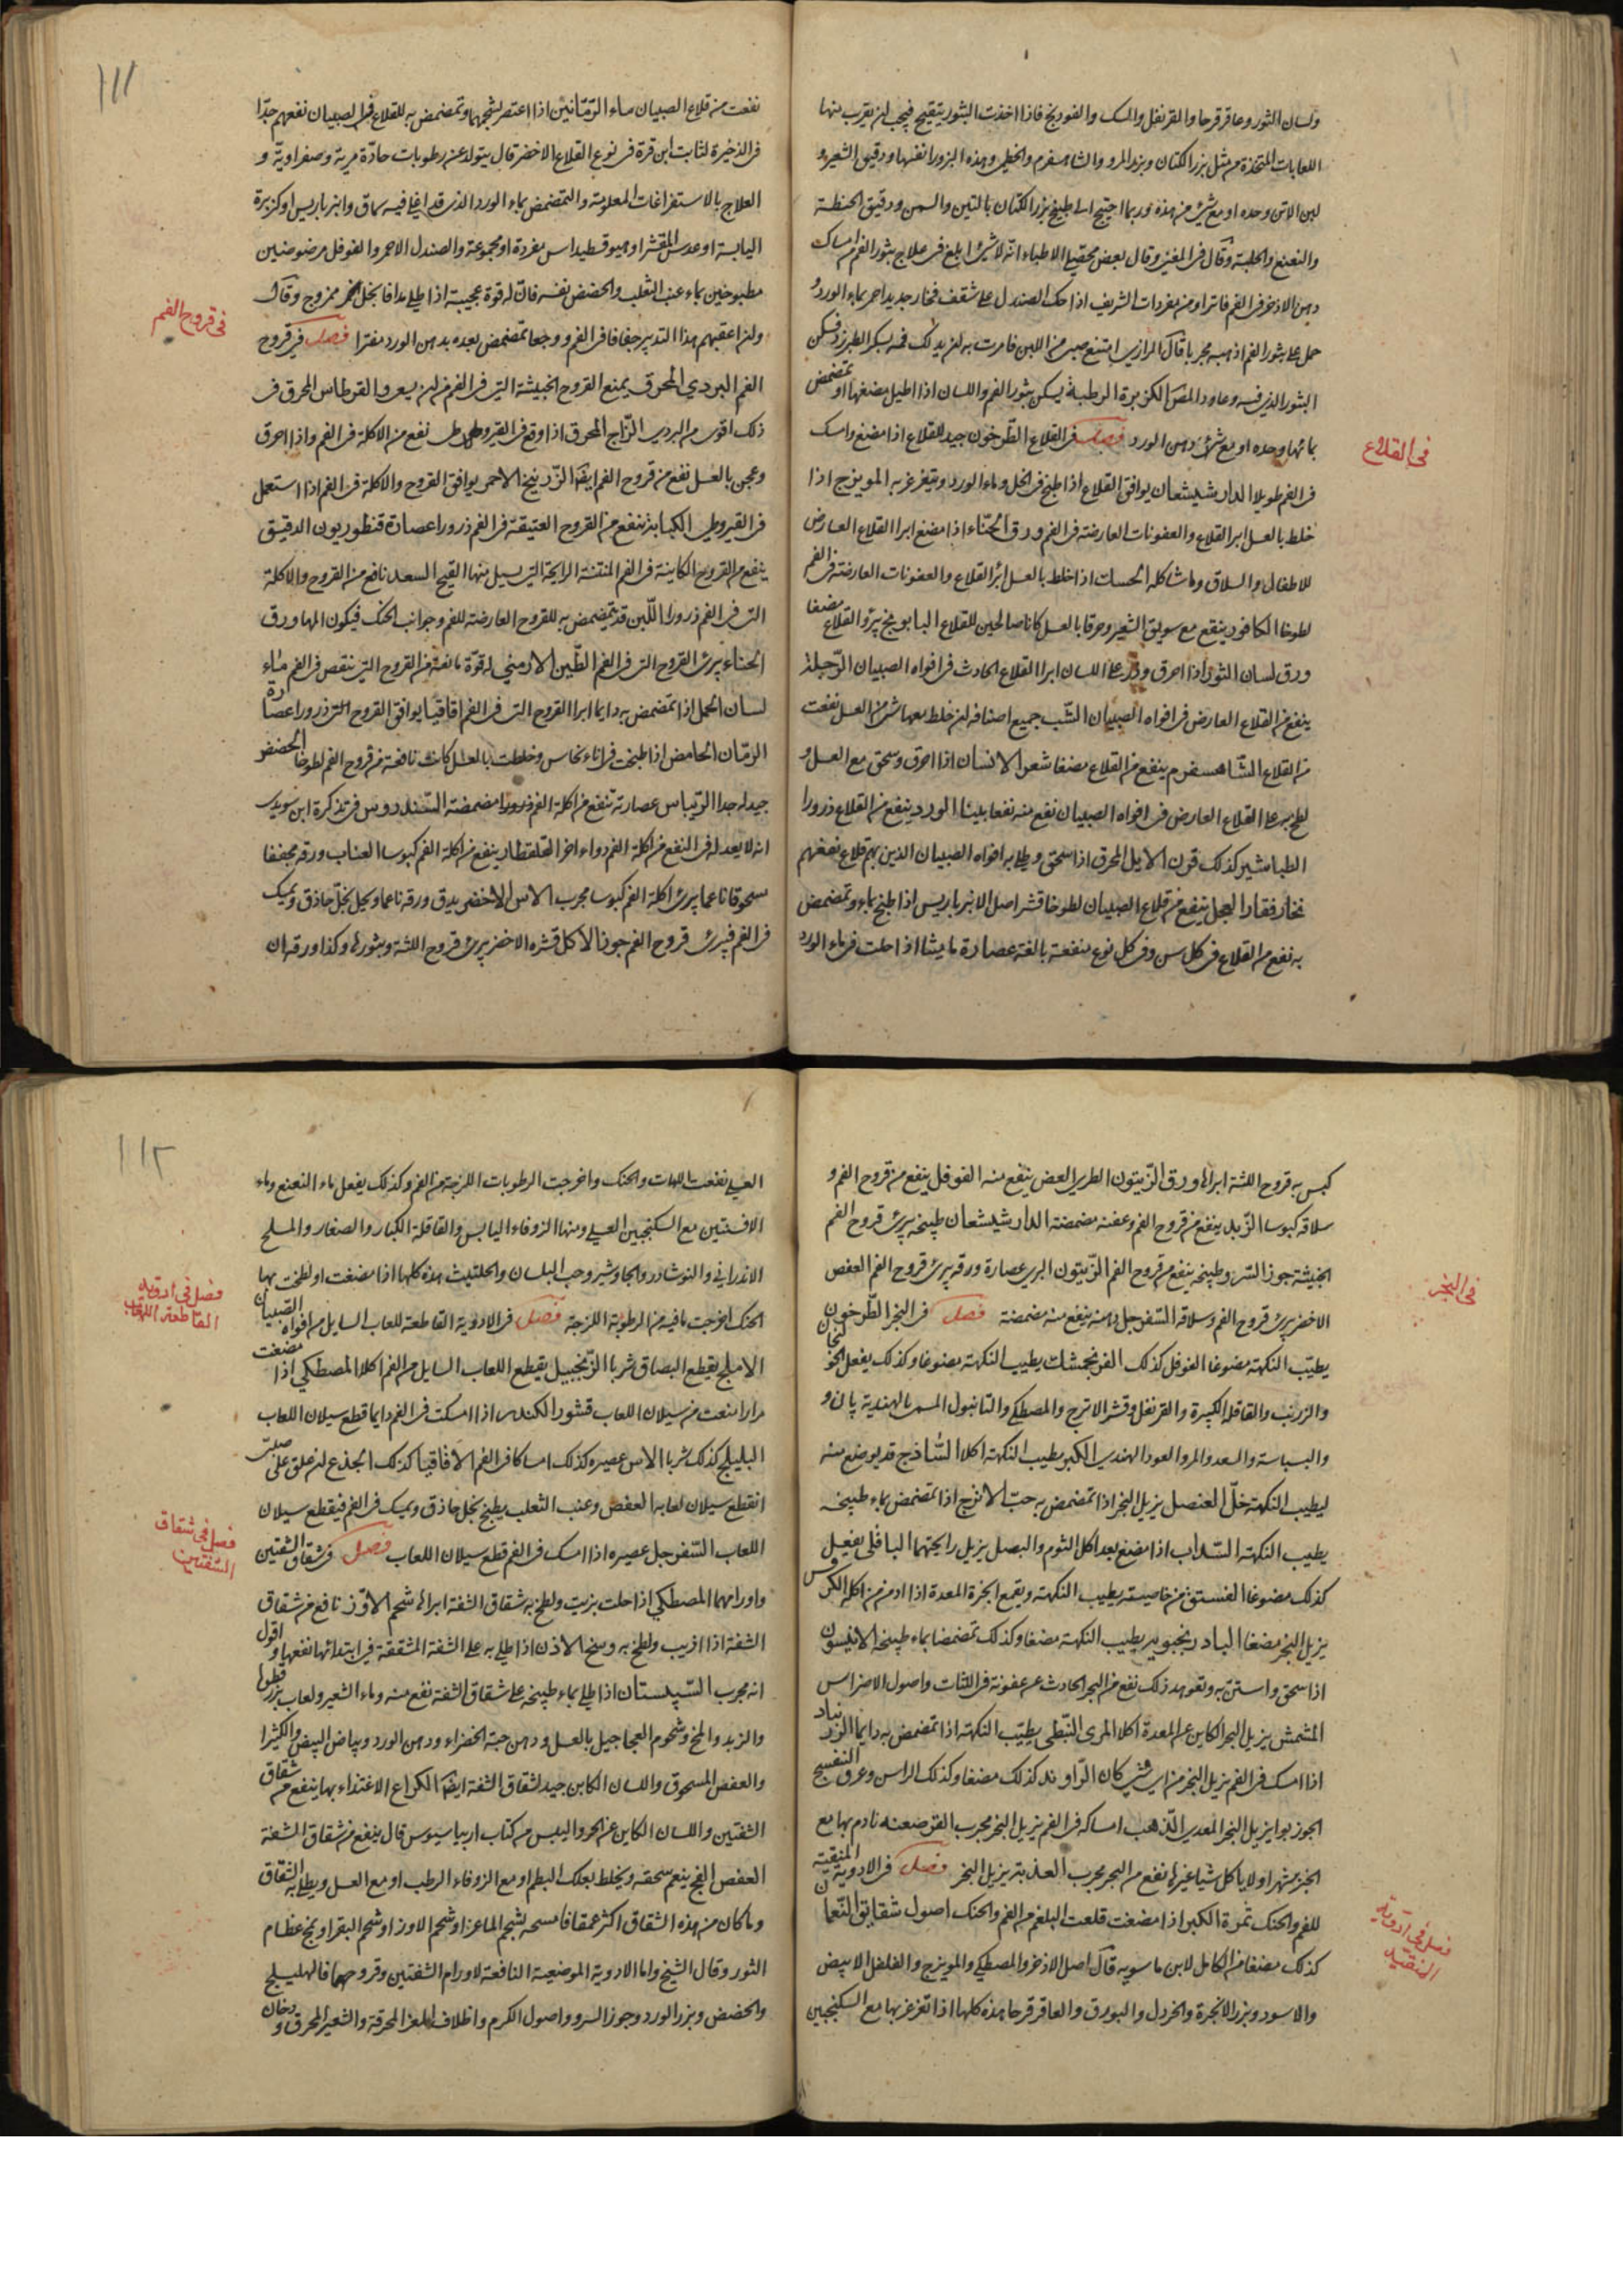 ولسان الثور وعاقرقرحا والقرنفل والمسك والفوديخ فاذا اخذت البثور يتقيح فيجب ان يقرب منها
اللعابات المتخذة من مثل بزر الكتان وبزر المرو والشاهسفرم والخطمى وهذه البزور انفسها ودقيق الشعير و
لبن الاتن وحده او مع شئ من هذه وربما احتيج الى طبيخ بزر الكتان بالتين والسمن ودقيق الحنطة
والنعنع والحلبة وقال فى المغنى وقال بعض محققى الاطباء انه لا شئ ابلغ فى علاج بثور الفم من امساك
دهن الاذخر فى الفم فاترا ومن مفردات الشريف اذا حك الصندل على شقف فخار جديد احمر بماء الورد و
حمل على بثور الفم اذهبه مجربا قال الرازى امتنع صبى من اللبن فامرت به ان يدلك فمه بسكر الطبرزد فسكن
البثور الذى فيه وعاود المص الكزبرة الرطبة يسكن بثور الفم واللسان اذا اطيل مضغها او تمضمض
بمائها وحده او مع شئ دهن الورد فصل فى القلاع الطرخون جيد للقلاع اذا مضغ وامسك
فى القلاع
فى الفم طويلا الدارشيشعان يوافق القلاع اذا طبخ فى الخل وماء الورد وتغرغر به المويزج اذا
خلط بالعسل ابرا القلاع والعفونات العارضة فى الفم ورق الحناء اذا مضغ ابرا القلاع العارض
للاطفال والسلاق وما شاكله الحسك اذا خلط بالعسل ابرا القلاع والعفونات العارضة فى الفم
لطوخا الكافور ينفع مع سويق الشعير وحرقا بالعسل كانا صالحين للقلاع البابونج يبرؤ القلاع مضغا
ورق لسان الثور اذا احرق وذر على اللسان ابرا القلاع الحادث فى افواه الصبيان الرجلة
ينفع من القلاع العارض فى افواه الصبيان الشب جميع اصنافه ان خلط معها شئ من العسل نفعت
من القلاع الشاهسفرم ينفع من القلاع مضغا شعر الانسان اذا احرق وسحق مع العسل و
لطخ به على القلاع العارض فى افواه الصبيان نفع منه نفعا بليغا الورد ينفع من القلاع ذرورا
الطباشير كذلك قرن الايل المحرق اذا سحق ويطلى به افواه الصبيان الذين بهم قلاع نفعهم
نخار فقار العجل ينفع من قلاع الصبيان لطوخا قشر اصل الانبرباريس اذا طبخ بماء وتمضمض
به نفع من القلاع فى كل سن وفى كل نوع منفعة بالغة عصارة ماميثا اذا حلت فى ماء الورد
١١١
نفعت من قلاع الصبيان ماء الرمانين اذا اعتصر بشحمهما وتمضمض به للقلاع فى الصبيان نفعهم جدا
فى الذخيرة لثابت ابن قرة فى نوع القلاع الاخضر قال يتولد عن رطوبات حادة مرية وصفراوية و
العلاج بالاستفراغات المعلومة والتمضمض بماء الورد الذى قد اغلى فيه سماق وانبرباريس او كزبرة
اليابسة او عدس المقشر او هيوقسطيداس مفردة او مجموعة والصندل الاحمر والفوفل مرضوضين
مطبوخين بماء عنب الثعلب والحضض نفسه فان له قوة عجيبة اذا طلى مدافا بخل خمر ممزوج وقال
وان اعقبهم هذا التدبير جفافا فى الفم ووجعا تمضمض بعده بدهن الورد مفترا فصل فى قروح
فى قروح الفم
الفم البردى المحرق يمنع القروح الخبيثة التى فى الفم من ان يسعى والقرطاس المحرق فى
ذلك اقوى من البردى الزاج المحرق اذا وقع فى القيروطى نفع من الاكلة فى الفم واذا احرق
وعجن بالعسل نفع من قروح الفم ايضا الزرنيخ الاحمر يوافق القروح والاكلة فى الفم اذا استعمل
فى القيروطى الكبابة ينفع من القروح العتيقة فى الفم ذرورا عصارة قنطوريون الدقيق
ينفع من القروح الكاينة فى الفم المنتنة الرايحة التى يسيل منها القيح السعد نافع من القروح والاكلة
التى فى الفم ذرورا اللبن قد يتمضمض به للقروح العارضة للفم وجوانب الحنك فيكون المها ورق
الحناء يبرئ القروح التى فى الفم الطين الارمنى له قوة مانعة من القروح التى تنقص فى الفم ماء
لسان الحمل اذا تمضمض به دايما ابرا القروح التى فى الفم اقاقيا يوافق القروح التى ذرورا عصارة
الرمان الحامض اذا طبخت فى اناء نحاس وخلطت بالعسل كانت نافعة من قروح الفم لطوخا الحضض
جيد له جدا الريباس عصارته تنفع من اكلة الفم ذرورا مضمضة السندروس فى تذكرة ابن سويدى
انه لا يعدله فى النفع من اكلة الفم دواء اخر القلقطار ينفع من اكلة الفم كبوسا العناب ورقه مجففا
سحوقا ناعما يبرئ اكلة الفم كبوسا مجرب الاس الاخضر يدق ورقه ناعما ويحل بخل حاذق ويمسك
فى الفم فيبرئ قروح الفم جوز الاكل قشره الاخضر يبرئ قروح اللثة وبثورها وكذا ورقه ان
كبس به قروح اللثة ابراها ورق الزيتون الطرى الغض ينفع منه الفوفل ينفع من قروح الفم و
سلاقه كبوسا الزبل ينفع من قروح الفم وعفنه مضمضة الدارشيشعان طبيخه يبرئ قروح الفم
الخبيثة جوز السرو طبيخه ينفع من قروح الفم الزيتون البرى عصارة ورقه يبرئ قروح الفم العفص
الاخضر يبرئ قروح الفم وسلاقة السفرجل دهنه ينفع منه مضمضة فصل فى البخر الطرخون
فى البخر
يطيب النكهة مضوغا الفوفل كذلك الفرنجمشك يطيب النكهة مضوغا وكذلك يفعل الخولنجان
والزرنب والقاقلة الكبيرة والقرنفل وقشر الاترج والمصطكى والتانبول المسمى بالهندية پان و
والبسباسة والسعد والمر والعود الهندى الكبر يطيب النكهة اكلا الشاذج قد يوضع منه
ليطيب النكهة خل العنصل يزيل البخر اذا تمضمض به حب الاترج اذا تمضمض بماء طبيخه
يطيب النكهة السذاب اذا مضغ بعد اكل الثوم والبصل يزيل رايحتهما الباقلى يفعل
كذلك مضوغا الفستق من خاصيته يطيب النكهة ويقمع ابخرة المعدة اذا ادمن من اكله الكرفس
يزيل البخر مضغا البادرنجبويه يطيب النكهة مضغا وكذلك تمضمضا بماء طبيخه الانيسون
اذا سحق واستن به وتعوهد ذلك نفع من البخر الحادث عن عفونة فى اللثات واصول الاضراس
المشمش يزيل البخر الكاين عن المعدة اكلا المرى النبطى يطيب النكهة اذا تمضمض به دايما الزرنباد
اذا امسك فى الفم يزيل البخر من اى شئ كان الراوند كذلك مضغا وكذلك الراسن وعرق البنفسج
الجوزبوا يزيل البخر المعدى الذهب امساكه فى الفم يزيل البخر مجرب القرصعنه نادم بها مع
الخبز شهرا ولا ياكل شيا غيرها نفع من البخر مجرب العذبة يزيل البخر فصل فى الادوية المنقية
للفم والحنك ثمرة الكبر اذا مضغت قلعت البلغم من الفم والحنك اصول شقايق النعمان
فصل فى ادوية
المنقية
كذلك مضغا من الكامل لابن ماسويه قال اصل الاذخر والمصطكى والمويزج والفلفل الابيض
والاسود وبزر الانجرة والخردل والبورق والعاقرقرحا هذه كلها اذا تغرغر بها مع السكنجبين
١١٢
العسلى نفعت اللهات والحنك واخرجت الرطوبات اللزجة من الفم وكذلك يفعل ماء النعنع وماء
الافسنتين مع السكنجبين العسلى ومنها الزوفاء اليابس والقاقلة الكبار والصغار والملح
الاندرانى والنوشادر والجاوشير وحب البلسان والحلتيت هذه كلها اذا مضغت او لطخت بها
الحنك اخرجت ما فيه من الرطوبة اللزجة فصل فى الادوية القاطعة للعاب السايل من افواه الصبيان
فصل فى ادوية
القاطعة اللعاب
الاملج يقطع البصاق شربا الزنجبيل يقطع اللعاب السايل من الفم اكلا المصطكى اذا مضغت
مرارا منعت من سيلان اللعاب قشور الكندر اذا امسكت فى الفم دايما قطع سيلان اللعاب
البليلج كذلك شربا الاس عصيره كذلك امساكا فى الفم الاقاقيا كذلك الجذع ان علق على صبى
انقطع سيلان لعابه العفص وعنب الثعلب يطبخ بخل حاذق ويمسك فى الفم فيقطع سيلان
اللعاب السفرجل عصيره اذا امسك فى الفم قطع سيلان اللعاب فصل فى شقاق الشفتين
فصل فى شقاق
الشفتين
واورامهما المصطكى اذا حلت بزيت ولطخ به شقاق الشفة ابراها شحم الاوز نافع من شقاق
الشفة اذا اذيب ولطخ به وسخ الاذن اذا طلى به على الشفة المشققة فى ابتدائها نفعها واقول
انه مجرب السپستان اذا طلى بماء طبيخه على شقاق الشفة نفع منه وماء الشعير ولعاب بزرقطونا
والزبد والمخ وشحوم العجاجيل بالعسل ودهن حبة الخضراء ودهن الورد وبياض البيض والكثيرا
والعفص المسحوق واللسان الكاين جيد لشقاق الشفة ايضا الكراع الاغتذاء بها ينفع من شقاق
الشفتين واللسان الكاين عن الحر واليبس من كتاب اريباسيوس قال ينفع من شقاق الشفة
العفص الفج ينعم سحقه ويخلط بعلك البطم او مع الزوفاء الرطب او مع العسل ويطلى به الشقاق
وما كان من هذه الشقاق اكثر عمقا فامسحه بشحم الماعز او شحم الاوز او شحم البقر او بمخ عظام
الثور وقال الشيخ واما الادوية الموضعية النافعة لاورام الشفتين وقروحهما فالهليلج
والحضض وبزر الورد وجوز السرو واصول الكرم واظلاف المعز المحرقة والشعير المحرق ودخان